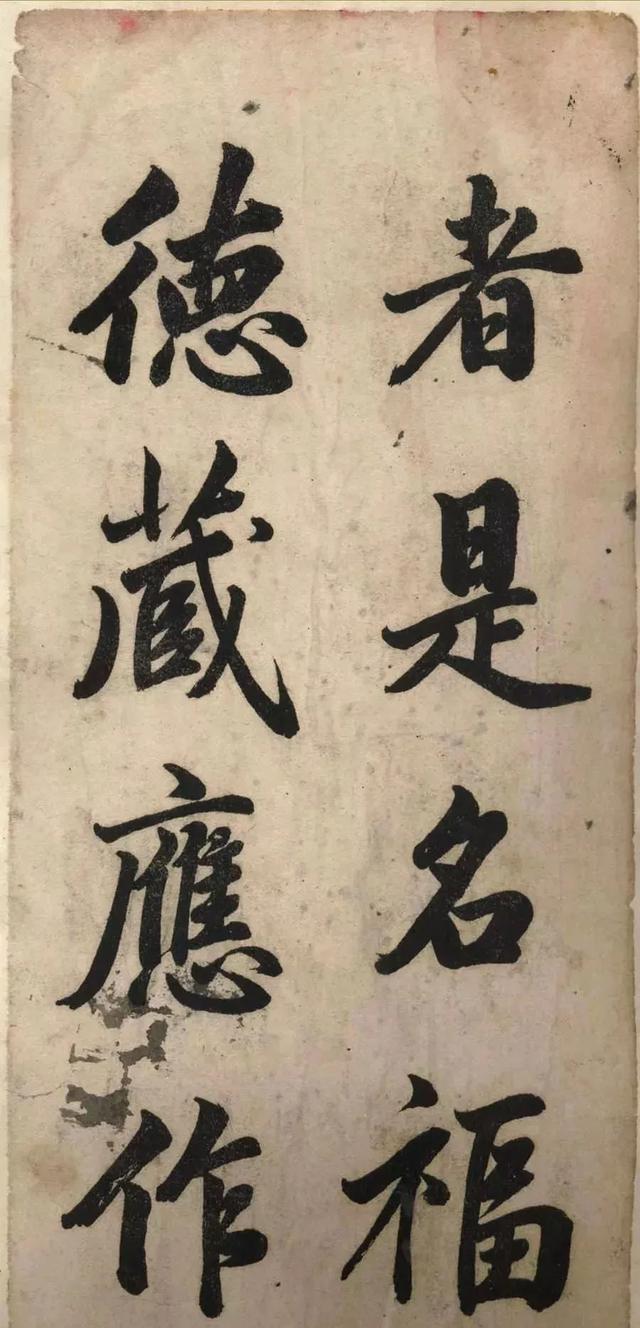 者是名福
德藏應作